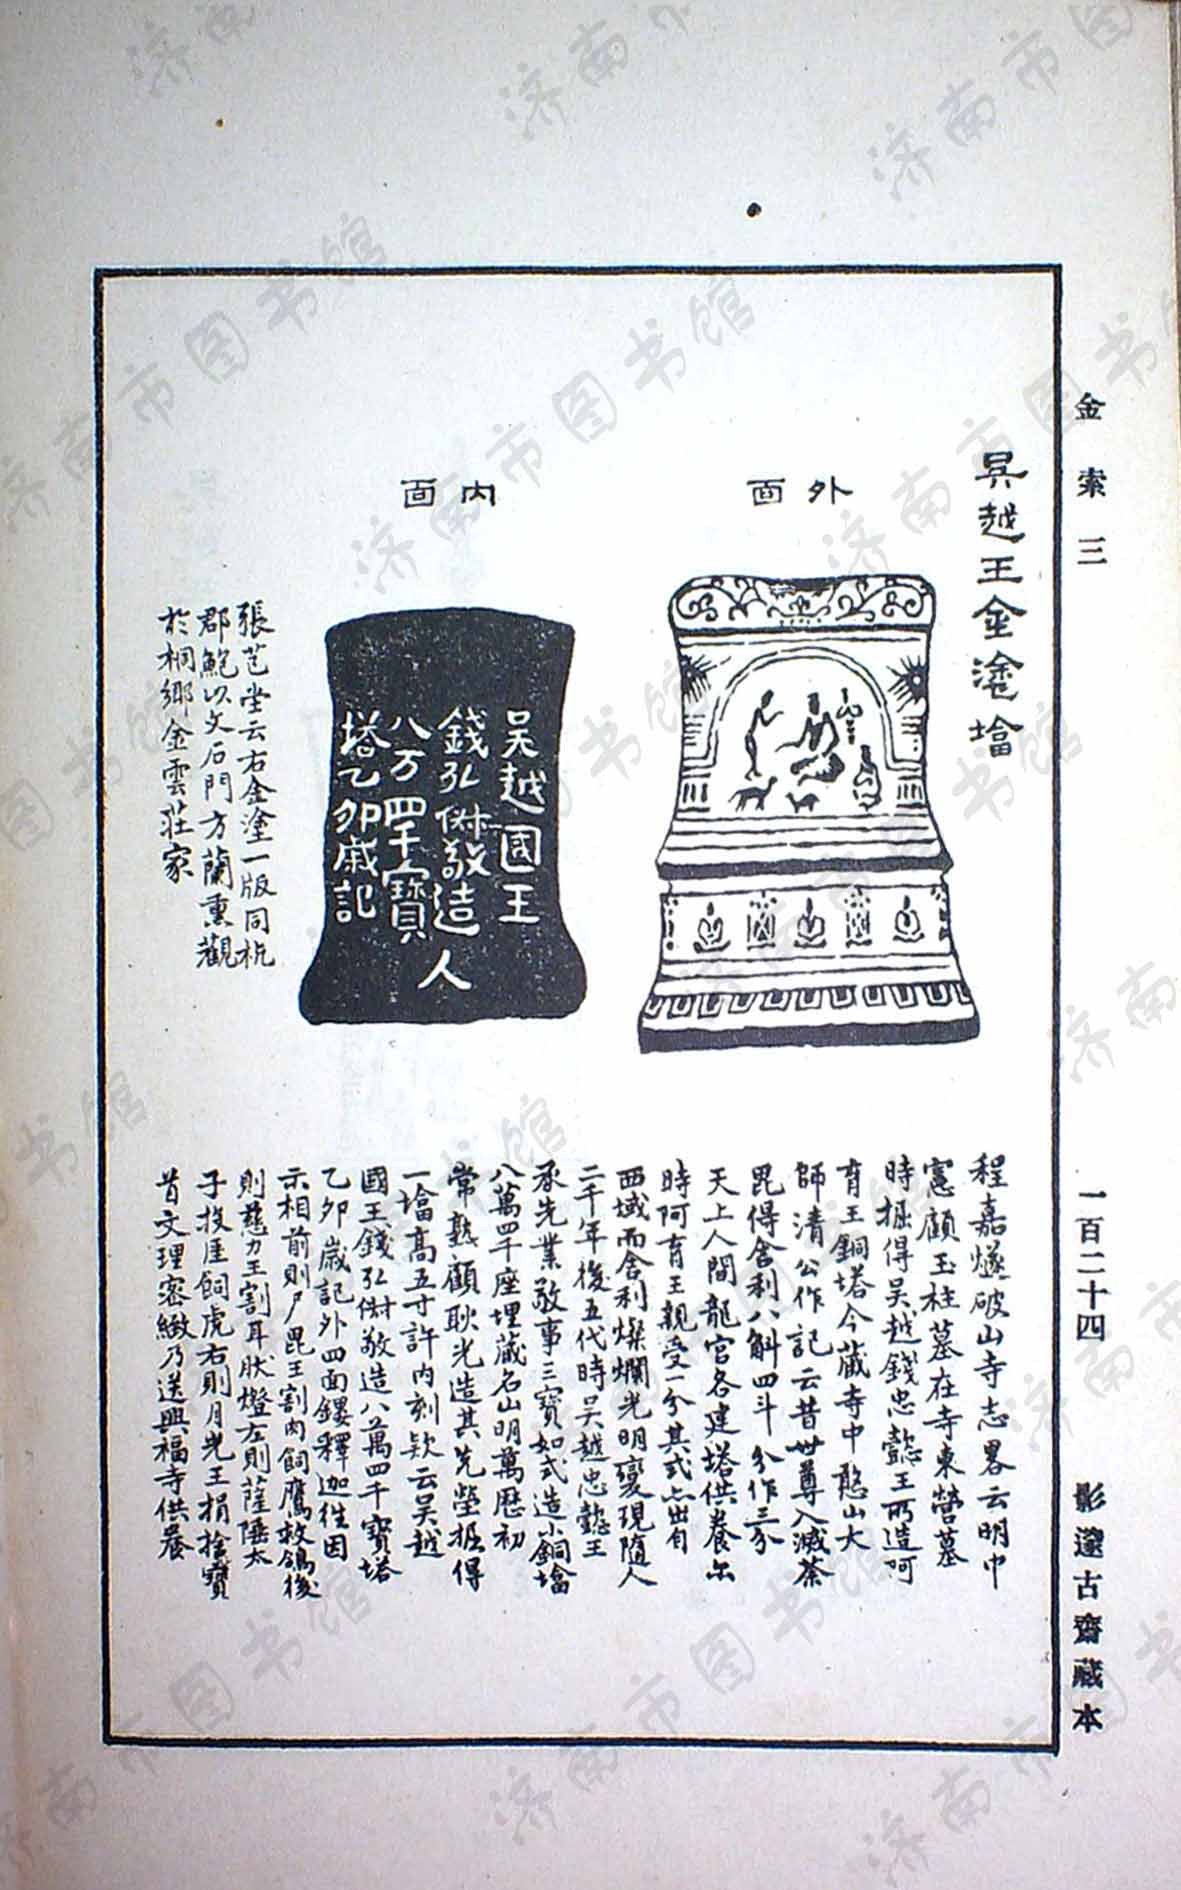 金索三
一百二十四
影邃古齋藏本
吴越王金塗墖
外面
内面
吴越國王
錢弘俶敬造
八万四千寶
塔乙夘歲記
人
張芑堂云右金塗一版同杭
郡鮑以文石門方蘭熏觀
於桐鄉金雲莊家
程嘉燧破山寺志畧云明中
憲顧玉柱墓在寺東營墓
時掘得吴越錢忠懿王所造阿
育王銅塔今藏寺中憨山大
師清公作記云昔世尊入滅荼
毘得舍利八斛四斗分作三分
天上人間龍宮各建塔供養尔
時阿育王親受一分其式亦出自
西域而舍利燦爛光明變現隨人
二千年後五代時吴越忠懿王
承先業敬事三寶如式造小銅墖
八萬四千座埋藏名山明萬歷初
常熟顧耿光造其先塋掘得
一墖高五寸許内刻欵云吴越
國王錢弘俶敬造八萬四千寶塔
乙夘歲記外四面鏤釋迦往因
示相前則尸毘王割肉飼鷹救鴿後
則慈力王割耳肰燈左則薩埵太
子投厓飼虎右則月光王捐捨寶
首文理密緻乃送興福寺供養
济南市图书馆